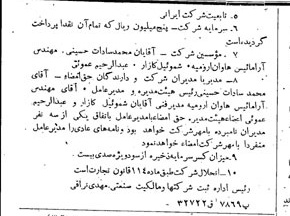 ۵ـ تابعیت شرکت ایرانی
۶ـ سرمایه شرکت ـ پنج میلیون ریال که تمام آن نقدا پرداخت
گردیده است
۷ـ مؤسسین شرکت ـ آقایان محمد سادات حسینی . مهندس
آرامائیس هاوان ارومیه . شموئیل گازار . عبدالرحیم عموئی
۸ـ مدیر یا مدیران شرکت و دارندگان حق امضاء ـ آقای
محمد سادات حسینی رئیس هیئت مدیره و مدیر عامل . آقای مهندس
آرامائیس هاوان ارومیه مدیر فنی آقایان شموئیل گازار و عبدالرحیم
عموئی اعضاء هیئت مدیره . حق امضاء با مدیر عامل باتفاق یکی از سه نفر
مدیران نامبرده با مهر شرکت خواهد بود و نامه های عادی را مدیر عامل
منفردا با مهر شرکت امضاء خواهد نمود
۹ـ میزان کسر سرمایه ذخیره از سود ویژه صدی بیست
۱۰ـ انحلال شرکت طبق ماده ۱۱۴ قانون تجارت است
رئیس اداره ثبت شرکتها و مالکیت صنعتی . مهدی نراقی
پ ۷۸۶۹ ق ۳۲۷۲۲